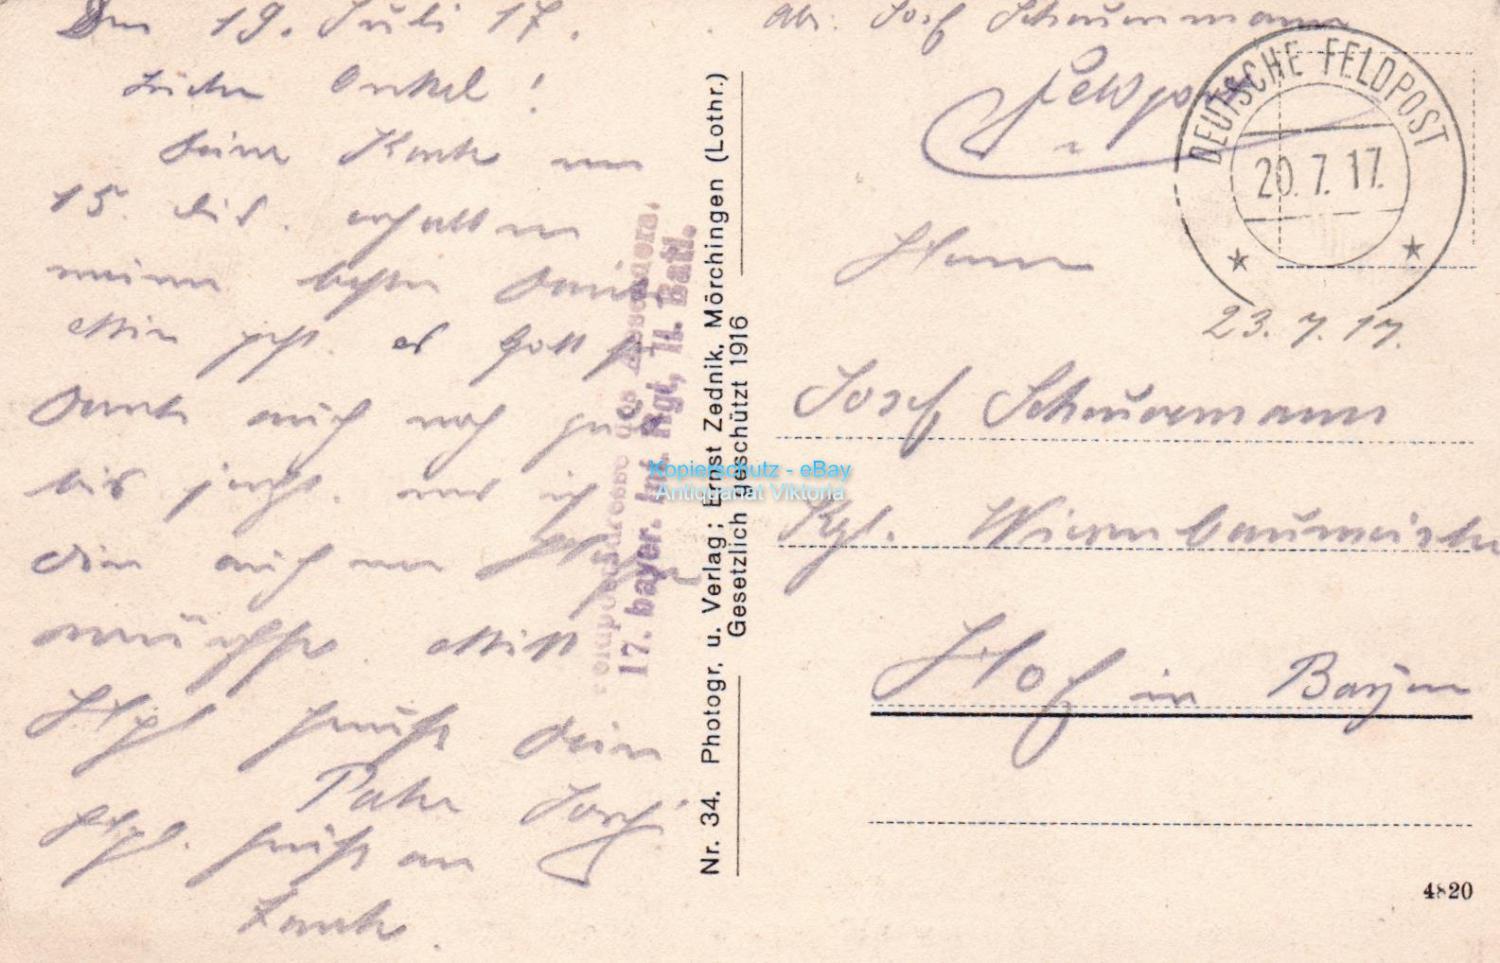 Den 19. Juli 17.
Lieber Onkel!
Deine Karte am
15. dis. erhalten
meinen besten Dank
Mir geht es Gott sei
Dank auch noch gut
bis jetzt. was ich
dir auch von
wünsche. Mit
Hzl gruß dein
Pate Josef
Hzl. gruß an
Tante.
Abs. Josef Scheuermann
Feldpost
DEUTSCHE FELDPOST
20.7.17.
23.7.17.
Herrn
Josef Scheuermann
Kgl. Wiesenbaumeister
Hof in Bayern
Feldpostadresse des Absenders:
17. bayer. Inf. Rgt, II. Batl.
Nr. 34. Photogr. u. Verlag; Ernst Zednik, Mörchingen (Lothr.)
Gesetzlich geschützt 1916
Kopierschutz - eBay
Antiquariat Viktoria
4820